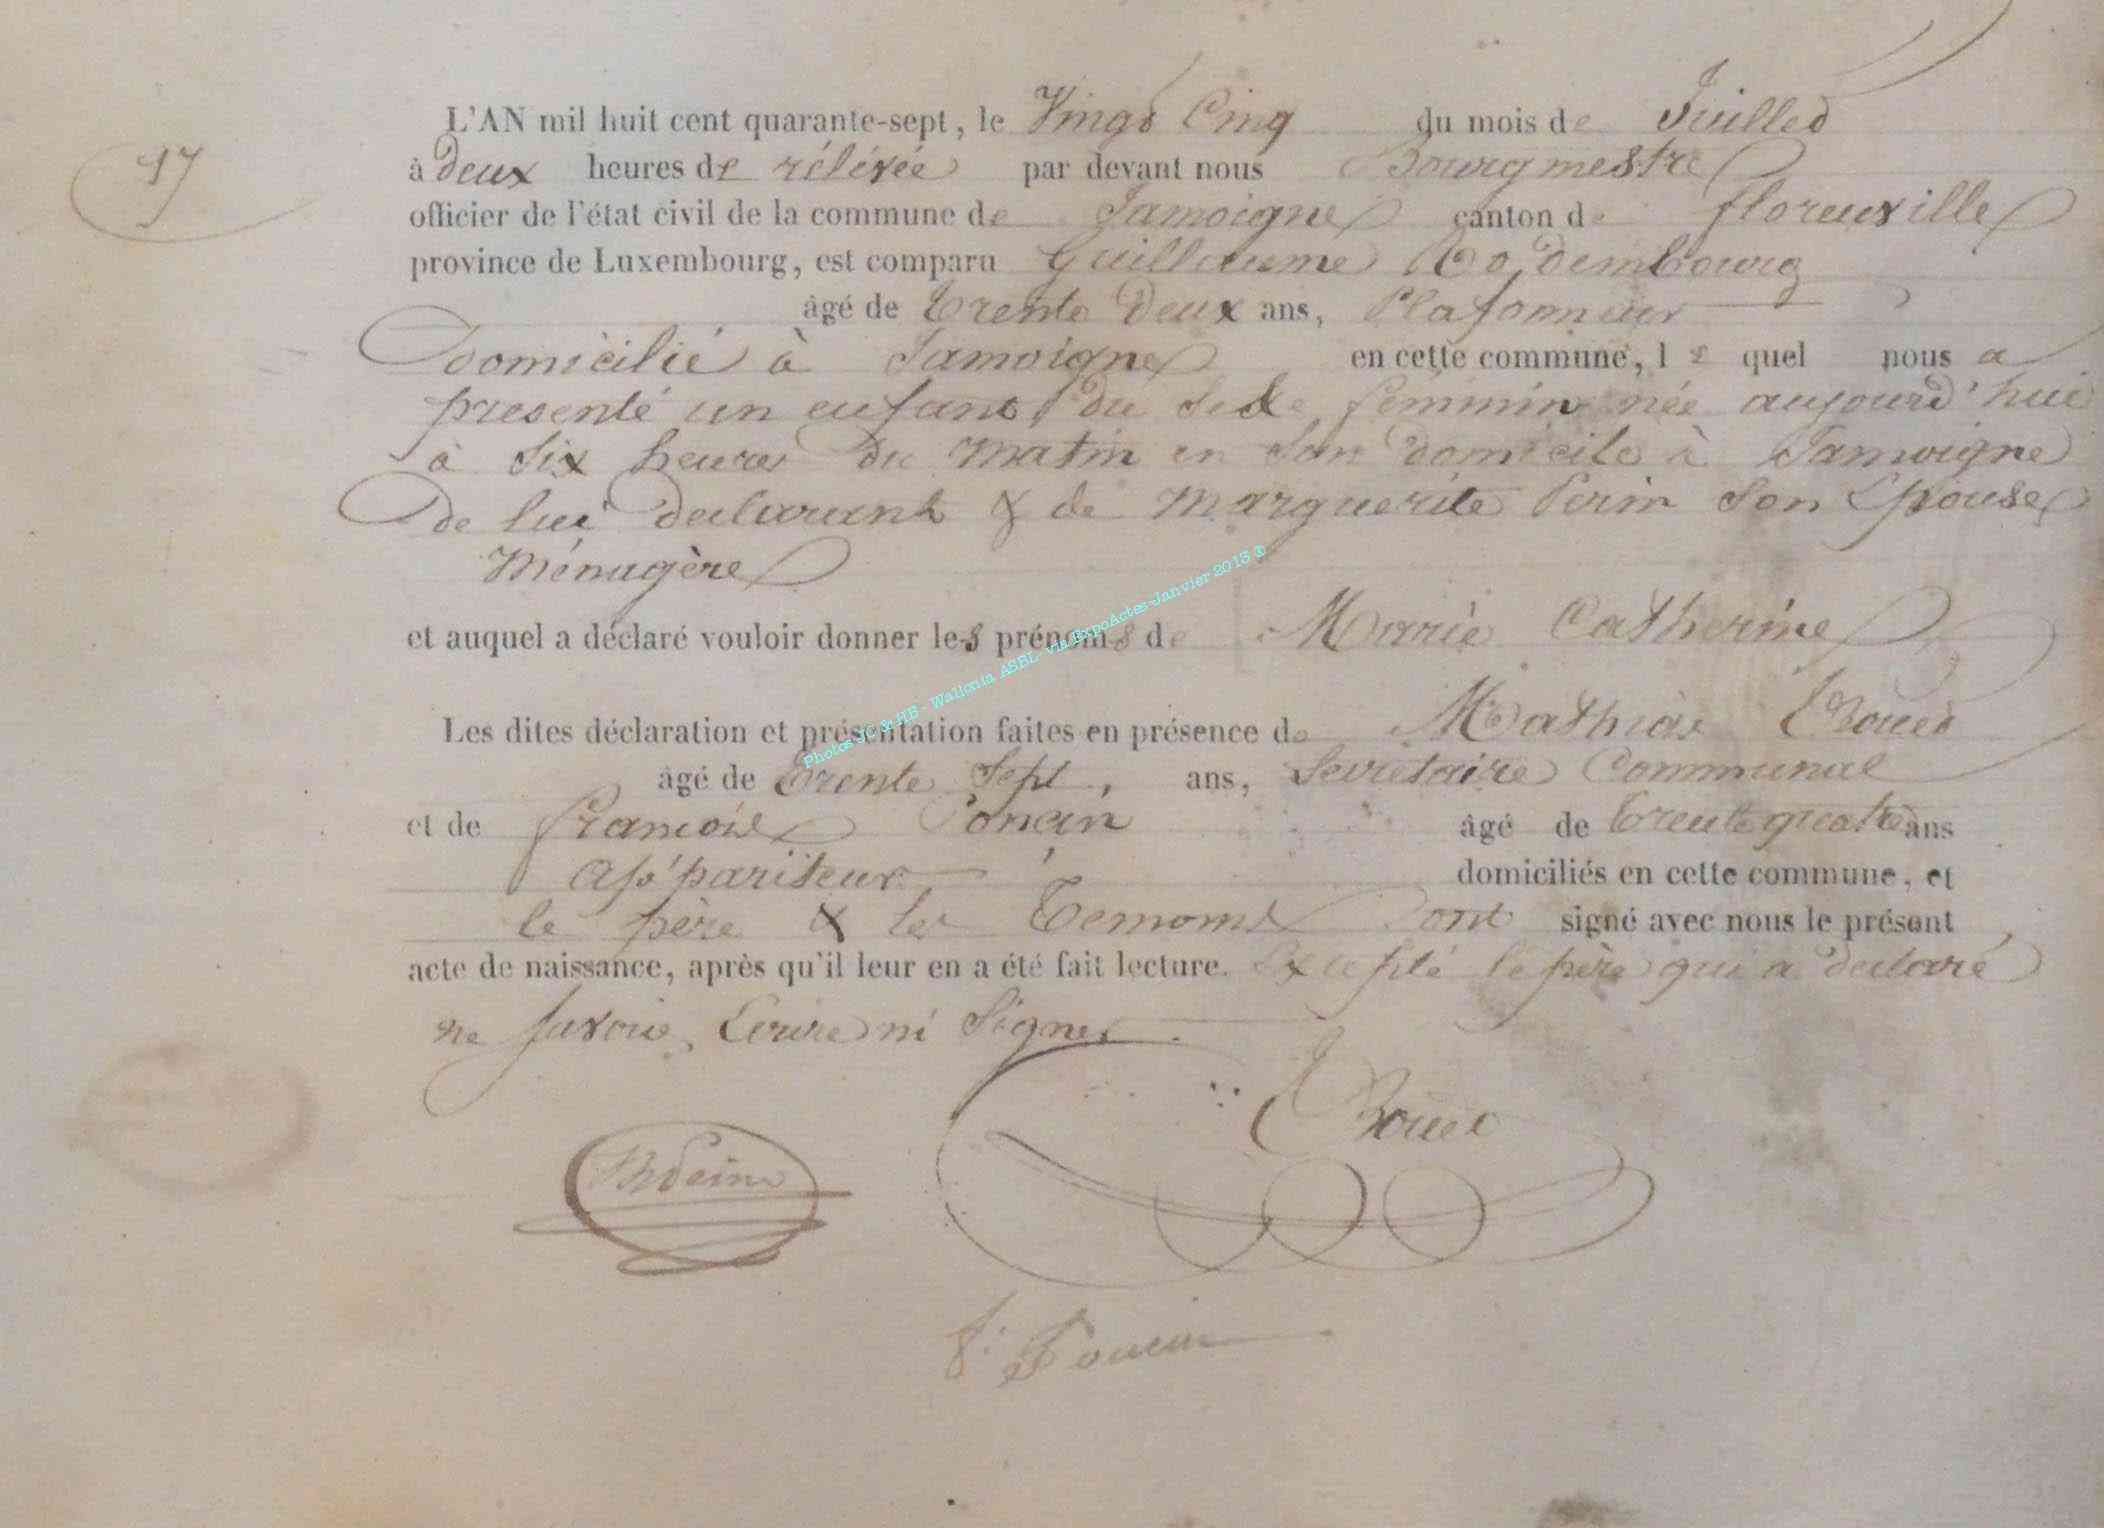 17
L'AN mil huit cent quarante-sept, le Vingt Cinq du mois de Juillet
à deux heures de rélévée par devant nous Bourgmestre
officier de l'état civil de la commune de Jamoigne canton de florenville
province de Luxembourg, est comparu Guillaume Rodembourg
âgé de Trente Deux ans, Plafonneur
Domicilié à Jamoigne en cette commune, le quel nous a
presenté un enfant du sexe féminin née aujourd'hui
à six heures du matin en son domicile à Jamoigne
De lui declarant & de Marguerite Perin son Epouse
Ménagère
et auquel a déclaré vouloir donner les prénoms de Marie Catherine
Les dites déclaration et présentation faites en présence de Mathias
âgé de Trente Sept, ans, Secretaire Communal
et de françois Poncin âgé de Trente quatre ans
Appariteur domiciliés en cette commune, et
le père & les Temoins ont signé avec nous le présent
acte de naissance, après qu'il leur en a été fait lecture. Excepté le père qui a declaré
ne savoir, Ecrire ni Signer.
f. Poncin
Photos JC & HB - Wallonia ASBL- via ExpoActes-Janvier 2013 ®